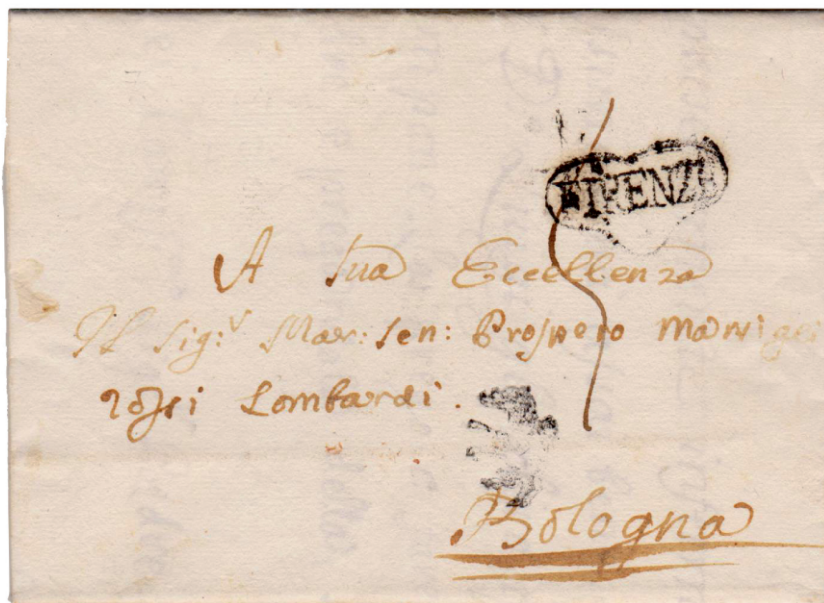 FIRENZE
A Sua Eccellenza
Il Sig:r Mar: Sen: Prospero Marsigli
Rossi Lombardi.
Bologna